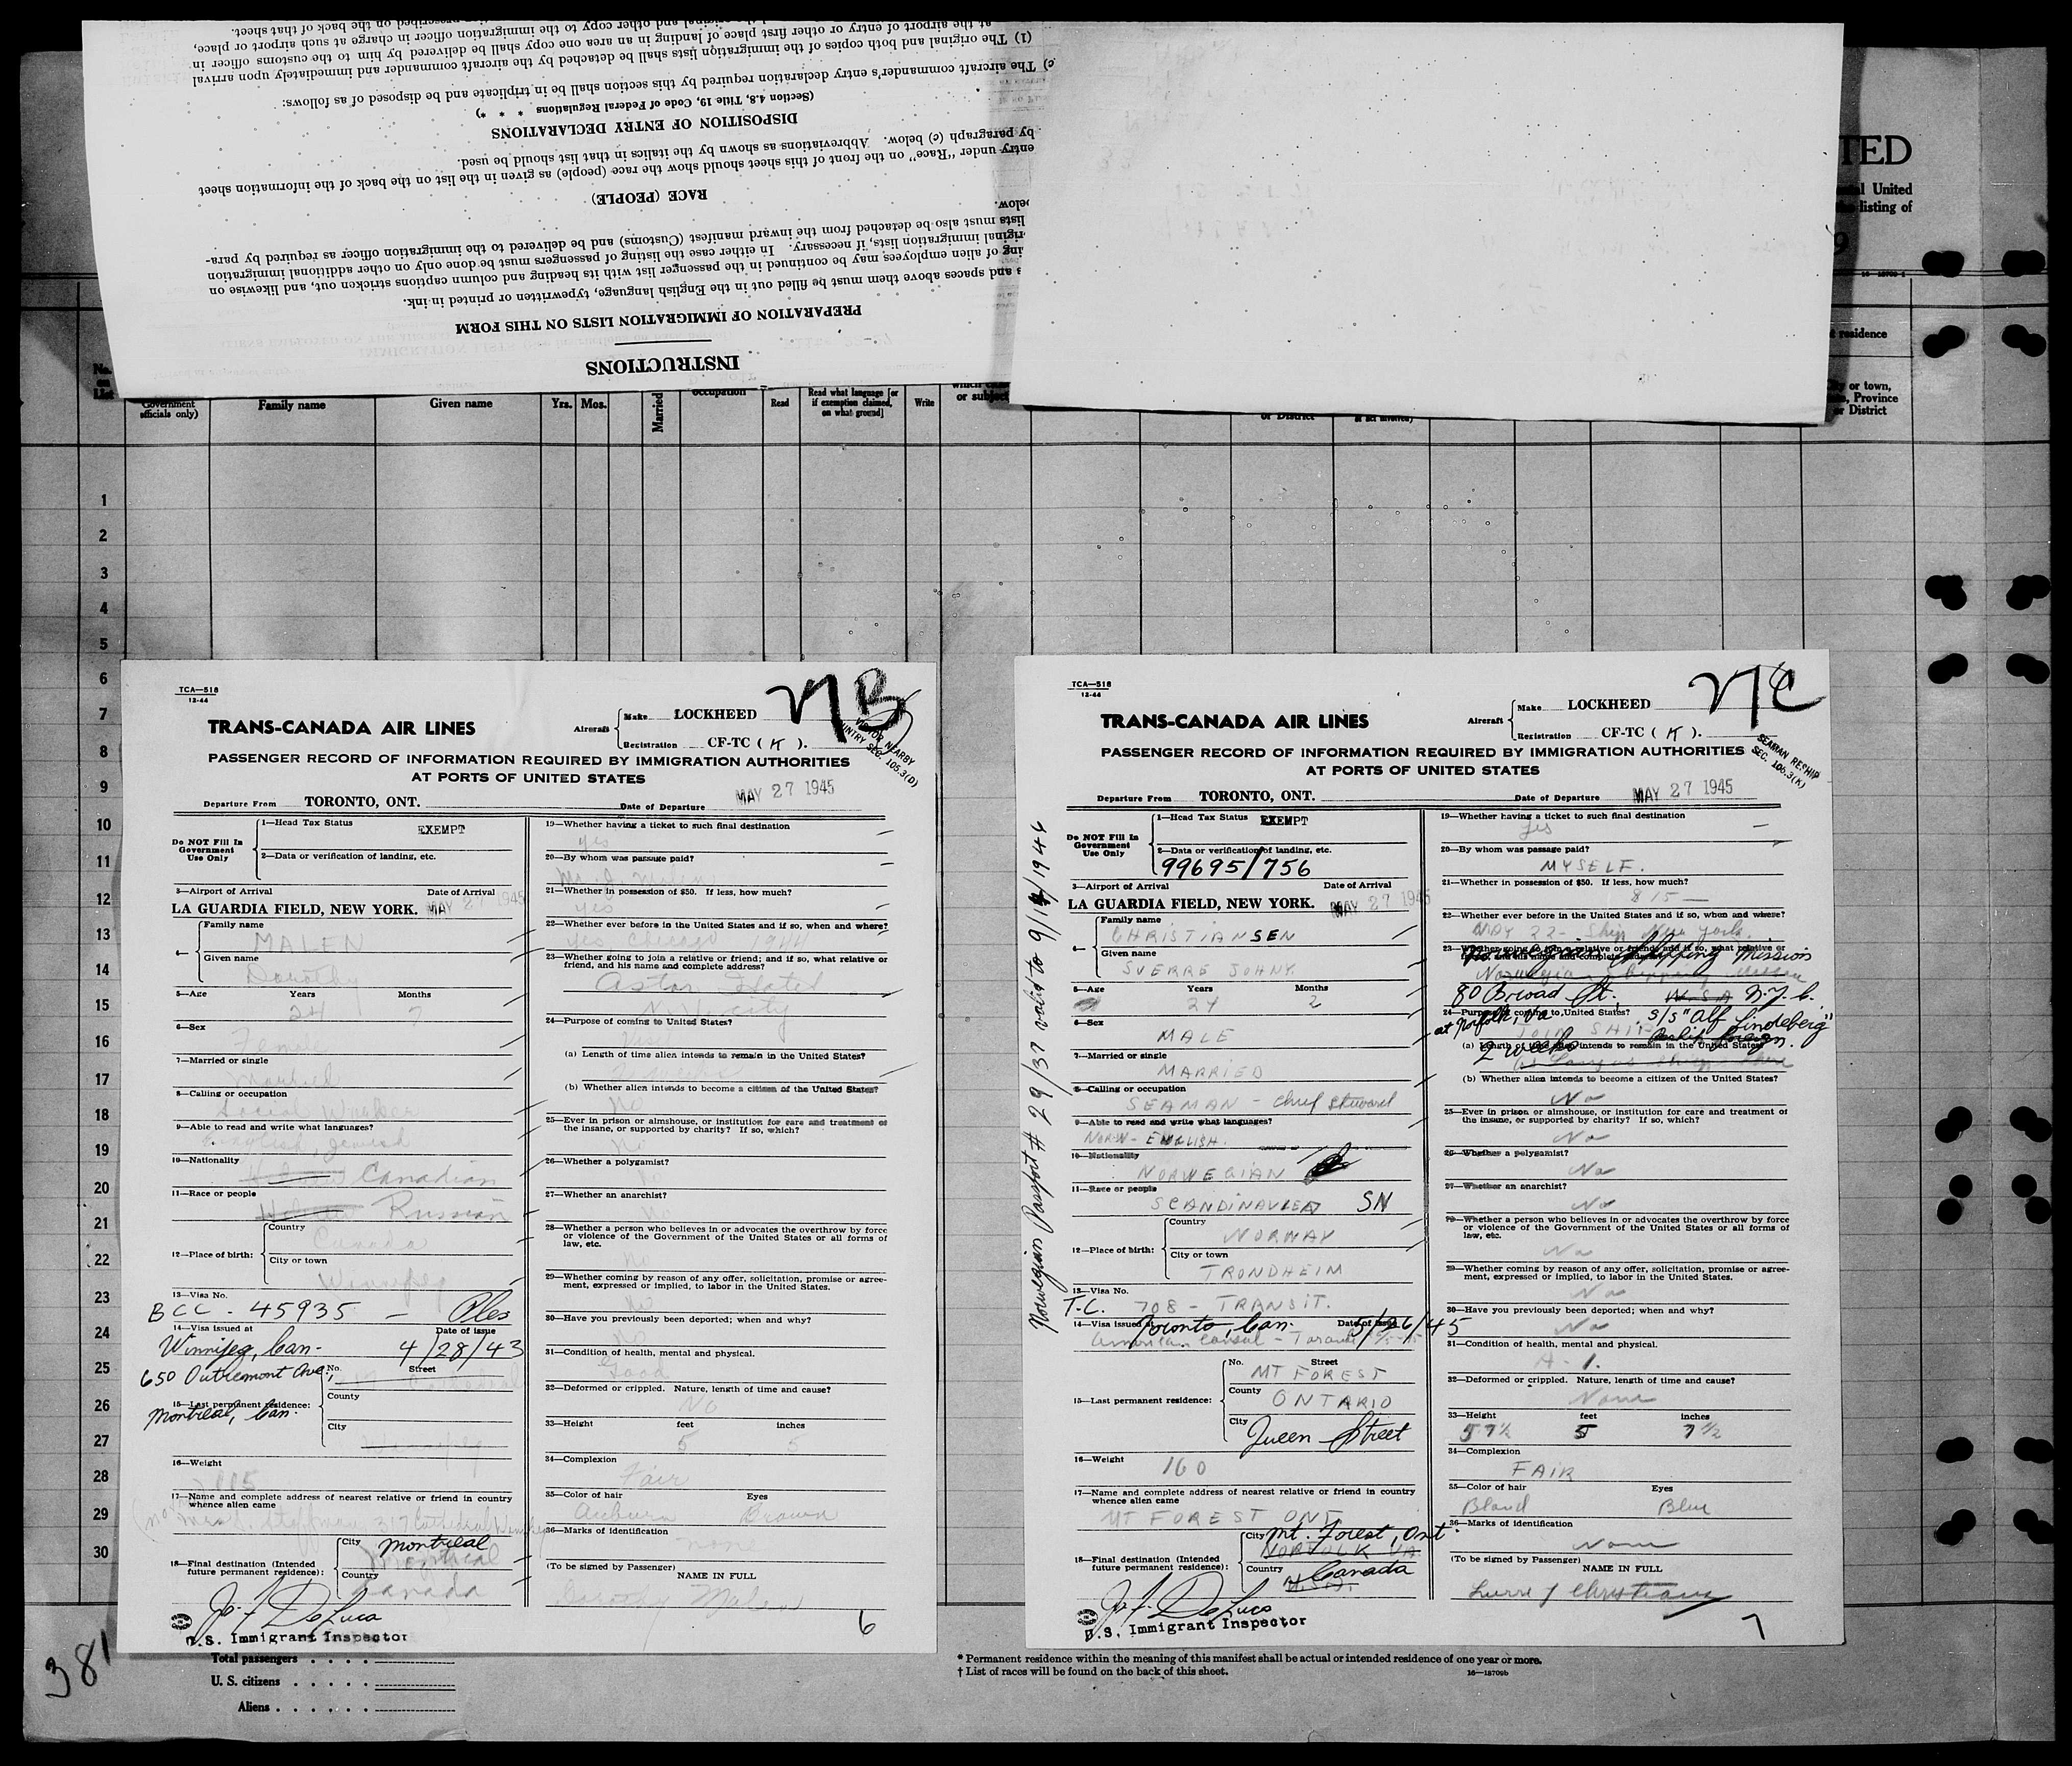 INSTRUCTIONS
PREPARATION OF IMMIGRATION LISTS ON THIS FORM
s and spaces above them must be filled out in the English language, typewritten or printed in ink.
ing of alien employees may be continued in the passenger list with its heading and column captions stricken out, and likewise on
riginal immigration lists, if necessary. In either case the listing of passengers must be done only on other additional immigration
lists must also be detached from the inward manifest (Customs) and be delivered to the immigration officer as required by para-
below.
RACE (PEOPLE)
entry under "Race" on the front of this sheet should show the race (people) as given in the list on the back of the information sheet
by paragraph (c) below. Abbreviations as shown by the italics in that list should be used.
DISPOSITION OF ENTRY DECLARATIONS
(Section 4.8, Title 19, Code of Federal Regulations * * *)
c) The aircraft commander's entry declaration required by this section shall be in triplicate and be disposed of as follows:
(1) The original and both copies of the immigration lists shall be detached by the aircraft commander and immediately upon arrival
at the airport of entry or other first place of landing in an area one copy shall be delivered by him to the customs officer in
original and other copy to the immigration officer in charge at such airport or place,
prescribed on the back of that sheet.
TED
United
listing of
9
residence
or town,
Province
or District
No. on List
Government officials only)
Family name
Given name
Yrs.
Mos.
Married
occupation
Read
Read what language [or if exemption claimed, on what ground]
Write
or subject
or District
1
2
3
4
5
6
7
8
9
10
11
12
13
14
15
16
17
18
19
20
21
22
23
24
25
26
27
28
29
30
TCA—518
12-44
TRANS-CANADA AIR LINES
Aircraft
Make LOCKHEED
Registration CF-TC ( K ).
VB
VISITOR NEARBY
COUNTRY SEC. 105.3(D)
PASSENGER RECORD OF INFORMATION REQUIRED BY IMMIGRATION AUTHORITIES
AT PORTS OF UNITED STATES
Departure From TORONTO, ONT.
Date of Departure MAY 27 1945
Do NOT Fill In Government Use Only
1—Head Tax Status EXEMPT
2—Data or verification of landing, etc.
3—Airport of Arrival
Date of Arrival
LA GUARDIA FIELD, NEW YORK. MAY 27 1945
4—
Family name
MALEN
Given name
Dorothy
5—Age Years Months
24 7
6—Sex
Female
7—Married or single
Married
8—Calling or occupation
Social Worker
9—Able to read and write what languages?
English, Jewish
10—Nationality
Canadian
11—Race or people
Hebrew Russian
12—Place of birth:
Country
Canada
City or town
Winnipeg
13—Visa No.
BCC - 45935 —
14—Visa issued at
Date of issue
Winnipeg, Can- 4/28/43
650 Outremont Ave,
Montreal, Can.
15—Last permanent residence:
No. Street
County
City
Winnipeg
16—Weight
17—Name and complete address of nearest relative or friend in country whence alien came
317 Cathedral Winnipeg
18—Final destination (Intended future permanent residence):
City Montreal
Montreal
Country
Canada
19—Whether having a ticket to such final destination
Yes
20—By whom was passage paid?
Mr. J. Malen
21—Whether in possession of $50. If less, how much?
yes
22—Whether ever before in the United States and if so, when and where?
Yes Chicago 1944
23—Whether going to join a relative or friend; and if so, what relative or friend, and his name and complete address?
Astor Hotel
N.Y. City
24—Purpose of coming to United States?
Visit
(a) Length of time alien intends to remain in the United States?
(b) Whether alien intends to become a citizen of the United States?
No
25—Ever in prison or almshouse, or institution for care and treatment of the insane, or supported by charity? If so, which?
No
26—Whether a polygamist?
No
27—Whether an anarchist?
No
28—Whether a person who believes in or advocates the overthrow by force or violence of the Government of the United States or all forms of law, etc.
No
29—Whether coming by reason of any offer, solicitation, promise or agreement, expressed or implied, to labor in the United States.
No
30—Have you previously been deported; when and why?
No
31—Condition of health, mental and physical.
Good
32—Deformed or crippled. Nature, length of time and cause?
No
33—Height feet inches
5 5
34—Complexion
Fair
35—Color of hair Eyes
Auburn Brown
36—Marks of identification
none
(To be signed by Passenger) NAME IN FULL
Dorothy Malen
Jos. F. DeLuca
U.S. Immigrant Inspector
6
TCA—518
12-44
TRANS-CANADA AIR LINES
Aircraft
Make LOCKHEED
Registration CF-TC ( K ).
SEAMAN RESHIP
SEC. 105.3(K)
PASSENGER RECORD OF INFORMATION REQUIRED BY IMMIGRATION AUTHORITIES
AT PORTS OF UNITED STATES
Departure From TORONTO, ONT.
Date of Departure MAY 27 1945
Do NOT Fill In Government Use Only
1—Head Tax Status EXEMPT
2—Data or verification of landing, etc.
99695/756
3—Airport of Arrival
Date of Arrival
LA GUARDIA FIELD, NEW YORK. MAY 27 1945
Norwegian Passport # 29/37 valid to 9/14/1946
4—
Family name
CHRISTIANSEN
Given name
SVERRE JOHNY
5—Age Years Months
24 2
6—Sex
MALE
7—Married or single
MARRIED
8—Calling or occupation
SEAMAN - Chief Steward
9—Able to read and write what languages?
NORW- ENGLISH.
10—Nationality
NORWEGIAN
11—Race or people
SCANDINAVIEN SN
12—Place of birth:
Country
NORWAY
City or town
TRONDHEIM
13—Visa No.
T.C. 708 - TRANSIT.
14—Visa issued at Toronto, Can. Date of issue 5/26/45
American Consul - Toronto
15—Last permanent residence:
No. Street
MT FOREST
County
ONTARIO
City
Queen Street
16—Weight
160
17—Name and complete address of nearest relative or friend in country whence alien came
MT FOREST ONT.
18—Final destination (Intended future permanent residence):
City Mt. Forest, Ont.
NORFOLK VA
Country Canada
U.S.A.
19—Whether having a ticket to such final destination
yes
20—By whom was passage paid?
MYSELF.
21—Whether in possession of $50. If less, how much?
$ 15 —
22—Whether ever before in the United States and if so, when and where?
MAY 22- Ship New York.
23—Whether going to join a relative or friend; and if so, what relative or friend, and his name and complete address?
Norwegian Shipping Mission
80 Broad St. N.Y.C.
24—Purpose of coming to United States?
at Norfolk, Va S/S "Alf Lindeberg"
JOIN SHIP
Reship foreign.
(a) Length of time alien intends to remain in the United States?
2 weeks
(b) Whether alien intends to become a citizen of the United States?
No
25—Ever in prison or almshouse, or institution for care and treatment of the insane, or supported by charity? If so, which?
No
26—Whether a polygamist?
No
27—Whether an anarchist?
No
28—Whether a person who believes in or advocates the overthrow by force or violence of the Government of the United States or all forms of law, etc.
No
29—Whether coming by reason of any offer, solicitation, promise or agreement, expressed or implied, to labor in the United States.
No
30—Have you previously been deported; when and why?
No
31—Condition of health, mental and physical.
A-1.
32—Deformed or crippled. Nature, length of time and cause?
None
33—Height feet inches
5 7½ 5 7½
34—Complexion
FAIR
35—Color of hair Eyes
Blond Blue
36—Marks of identification
None
(To be signed by Passenger) NAME IN FULL
Jos. F. DeLuca
U.S. Immigrant Inspector
7
381
Total passengers . . . .
U. S. citizens . . . . .
Aliens . . . . . .
* Permanent residence within the meaning of this manifest shall be actual or intended residence of one year or more.
† List of races will be found on the back of this sheet.
16—18709b